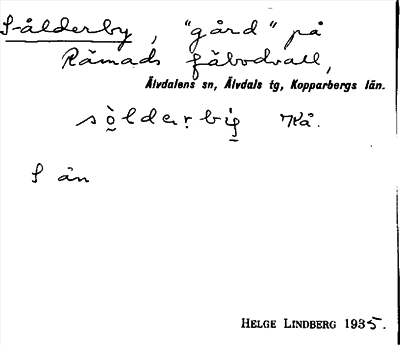 Sålderby, "gård" på
Råmads fäbodvall,
Älvdalens sn, Älvdals tg, Kopparbergs län.
sòlderbi̯g
S ån
HELGE LINDBERG 1935.